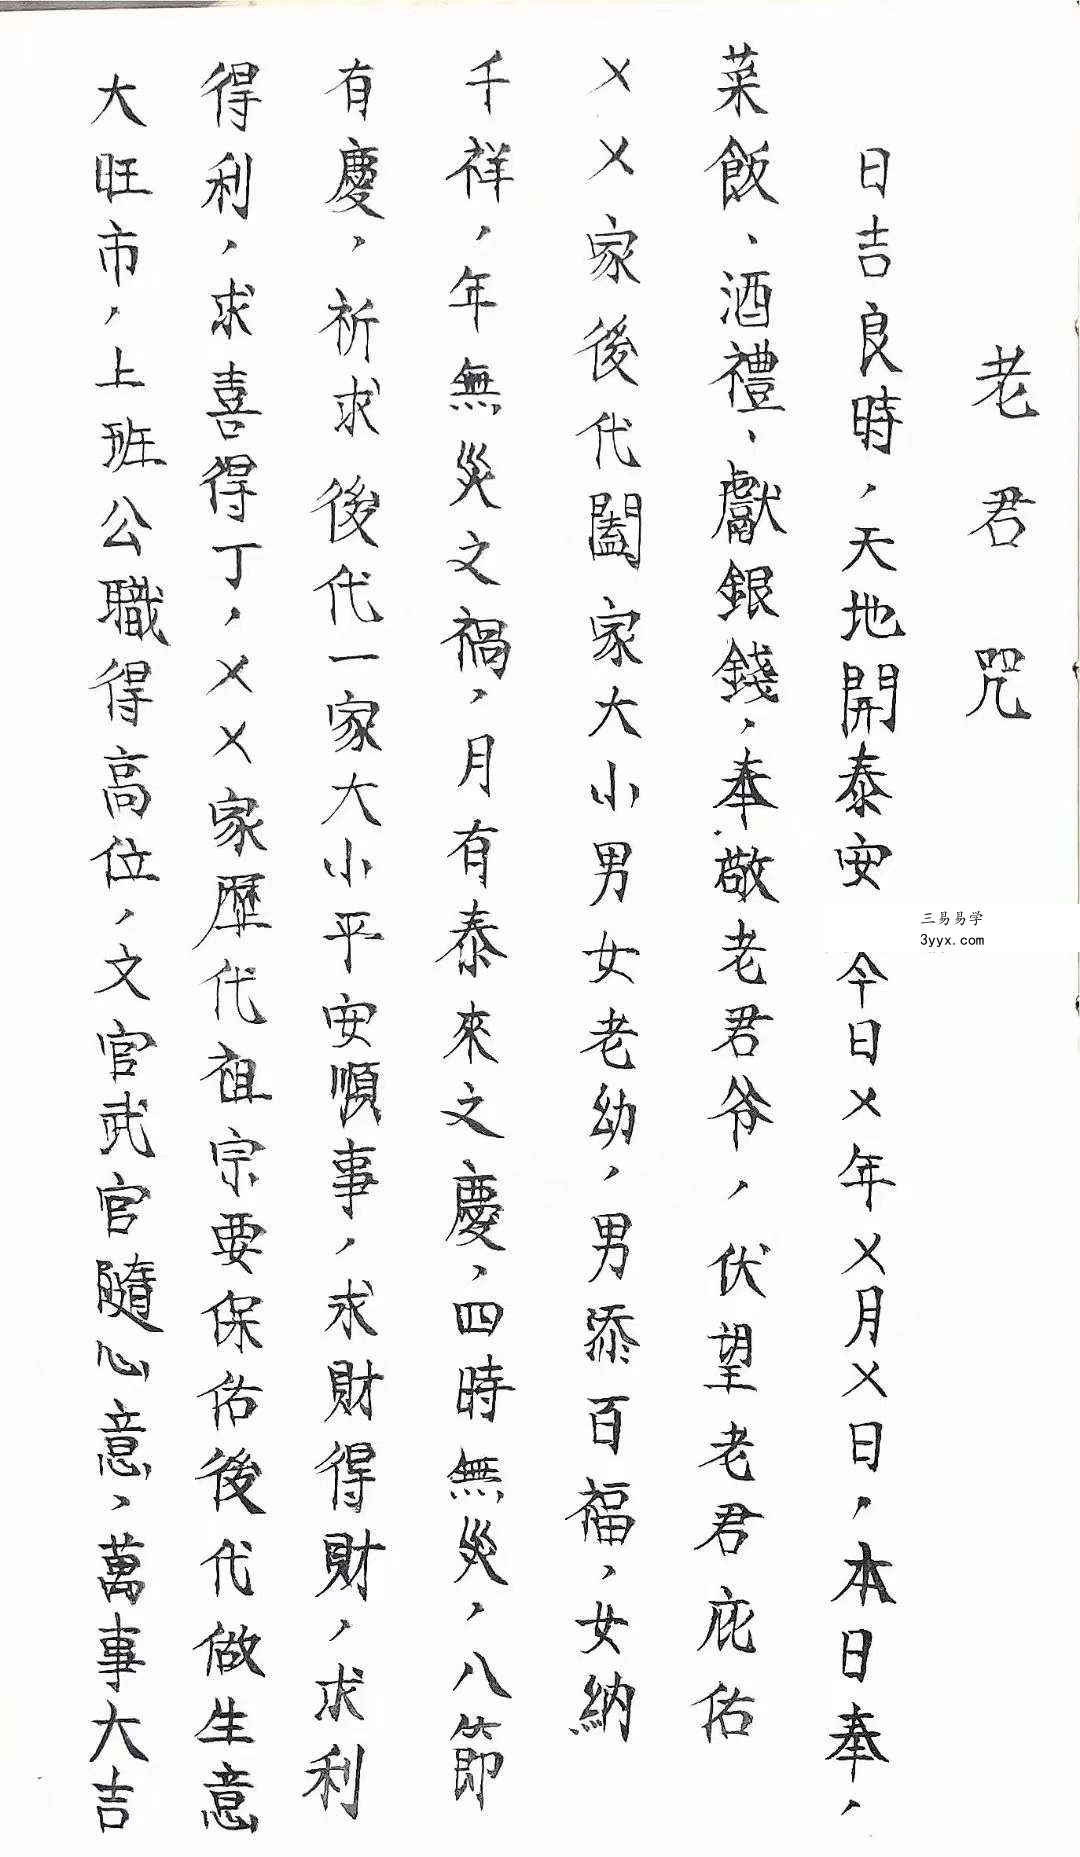 老君咒
日吉良時，天地開泰安 今日×年×月×日，本日奉，
菜飯、酒禮、獻銀錢，奉敬老君爷，伏望老君庇佑
××家後代闔家大小男女老幼，男添百福，女納
千祥，年無災之禍，月有泰來之慶，四時無災，八節
有慶，祈求後代一家大小平安順事，求財得財，求利
得利，求喜得丁，××家歷代祖宗要保佑後代做生意
大旺市，上班公職得高位，文官武官隨心意，萬事大吉
三易易学
3yyx.com